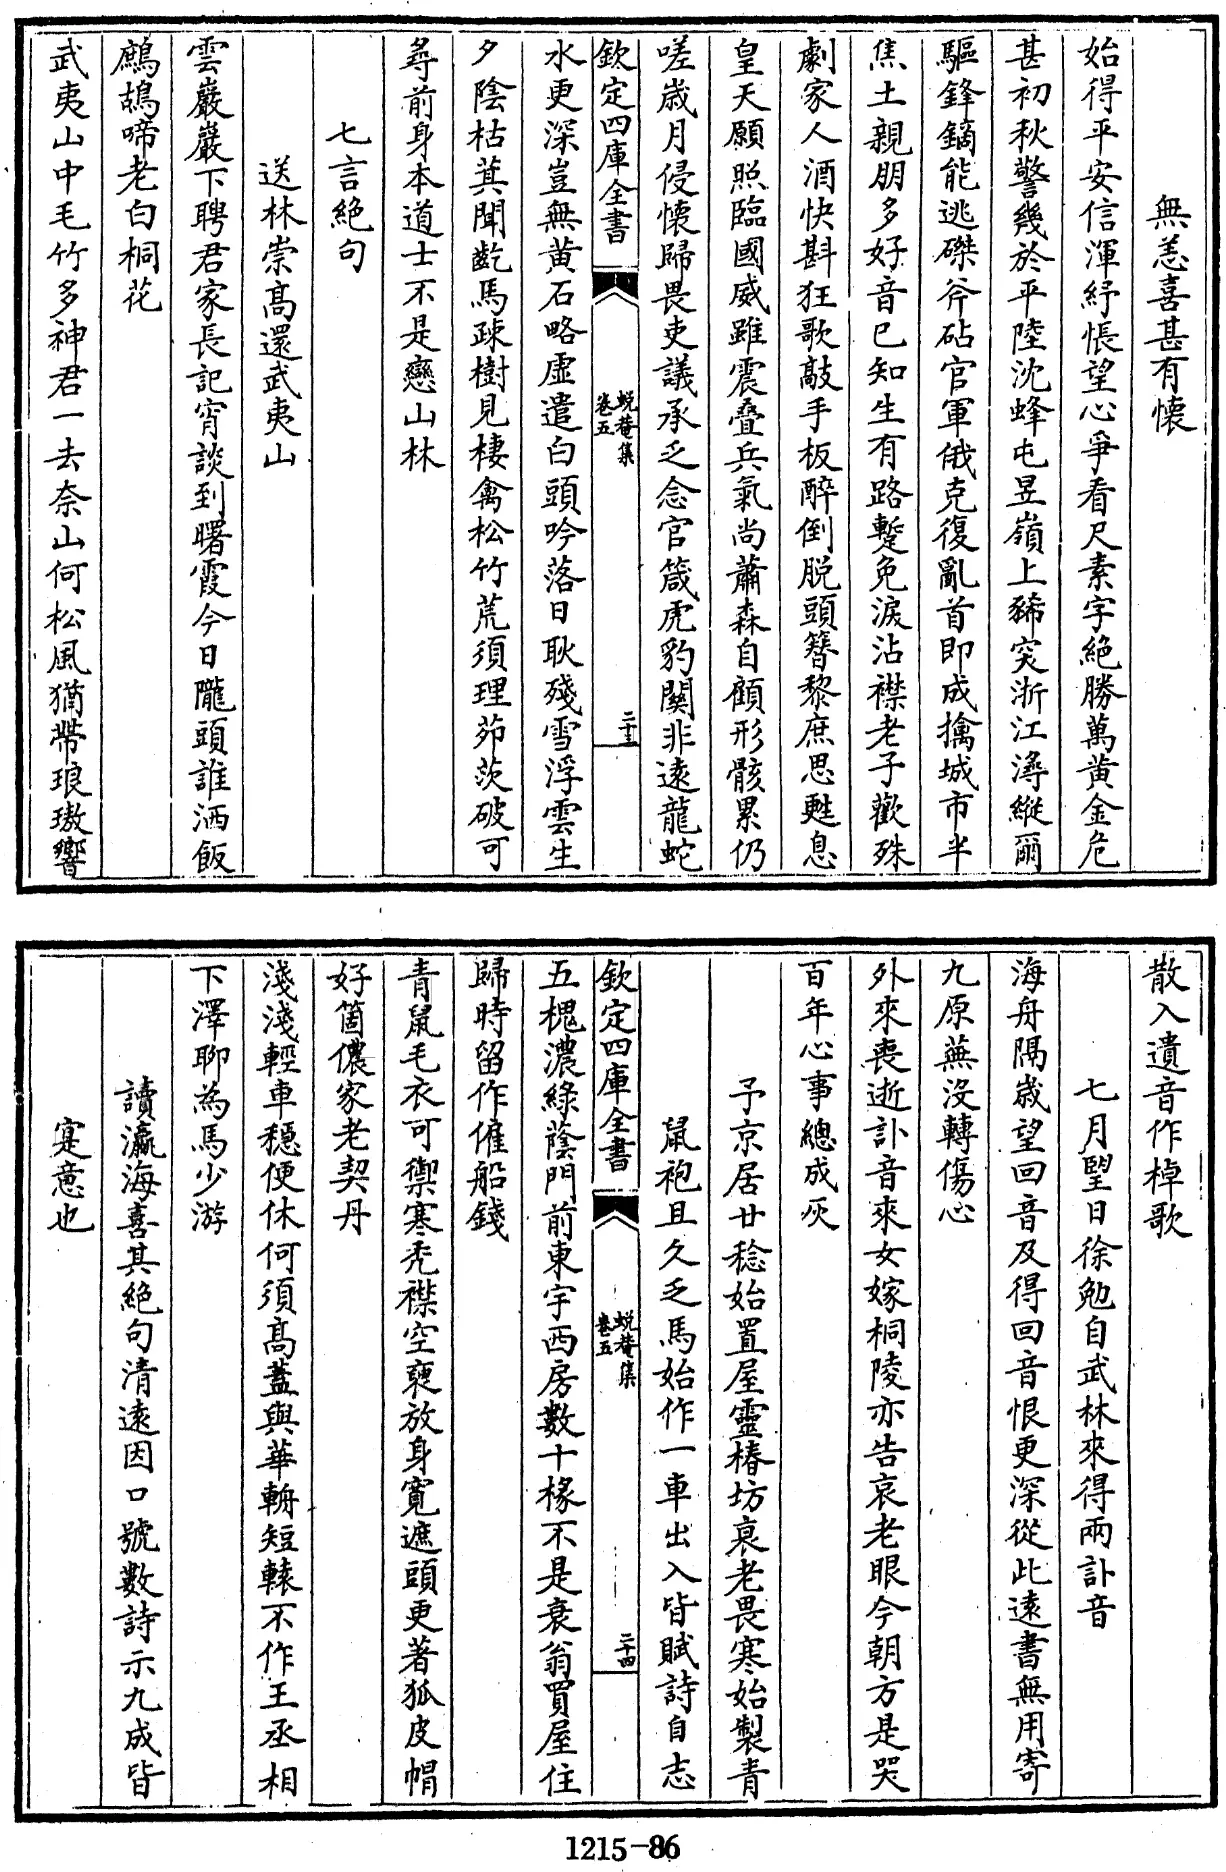 無恙喜甚有懷
始得平安信渾紓悵望心爭看尺素字絶勝萬黄金危
甚初秋警幾於平陸沈蜂屯昱嶺上豨突浙江潯縱爾
驅鋒鏑能逃磔斧砧官軍俄克復亂首即成擒城市半
焦土親朋多好音已知生有路蹔免淚沾襟老子歡殊
劇家人酒快斟狂歌敲手板醉倒脱頭簪黎庶思甦息
皇天願照臨國威雖震疊兵氣尚蕭森自顧形骸累仍
嗟歳月侵懷歸畏吏議承乏念官箴虎豹關非遠龍蛇
欽定四庫全書
蜕菴集
卷五
二十三
水更深豈無黄石略虚遣白頭吟落日耿殘雪浮雲生
夕陰枯萁聞齕馬疎樹見棲禽松竹荒須理茆茨破可
尋前身本道士不是戀山林
七言絶句
送林崇髙還武夷山
雲巖巖下聘君家長記宵談到曙霞今日隴頭誰洒飯
鷓鴣啼老白桐花
武夷山中毛竹多神君一去奈山何松風猶帶琅璈響
散入遺音作棹歌
七月朢日徐勉自武林來得兩訃音
海舟隔歳望回音及得回音恨更深從此遠書無用寄
九原蕪没轉傷心
外來喪逝訃音來女嫁桐陵亦告哀老眼今朝方是哭
百年心事總成灰
予京居廿稔始置屋靈椿坊衰老畏寒始製青
鼠袍且久乏馬始作一車出入皆賦詩自志
欽定四庫全書
蜕菴集
卷五
二十四
五槐濃緑蔭門前東宇西房數十椽不是衰翁買屋住
歸時留作僱船錢
青鼠毛衣可禦寒秃襟空褏放身寛遮頭更著狐皮帽
好箇儂家老契丹
淺淺輕車穏便休何須髙葢與華輈短轅不作王丞相
下澤聊為馬少游
讀瀛海喜其絶句清遠因口號數詩示九成皆
寔意也
1215-86